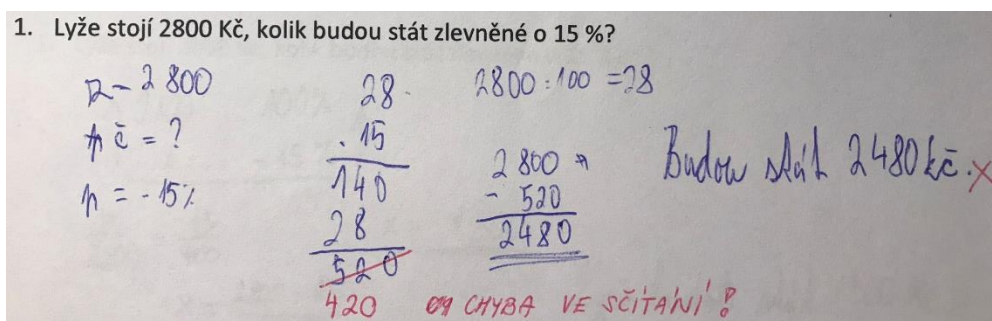 1. Lyže stojí 2800 Kč, kolik budou stát zlevněné o 15 %?
z – 2 800
č = ?
p = - 15%
28
. 15
140
28
520
420
2800 : 100 = 28
2 800
- 520
2480
Budou stát 2480 kč. X
CHYBA VE SČÍTÁNÍ!